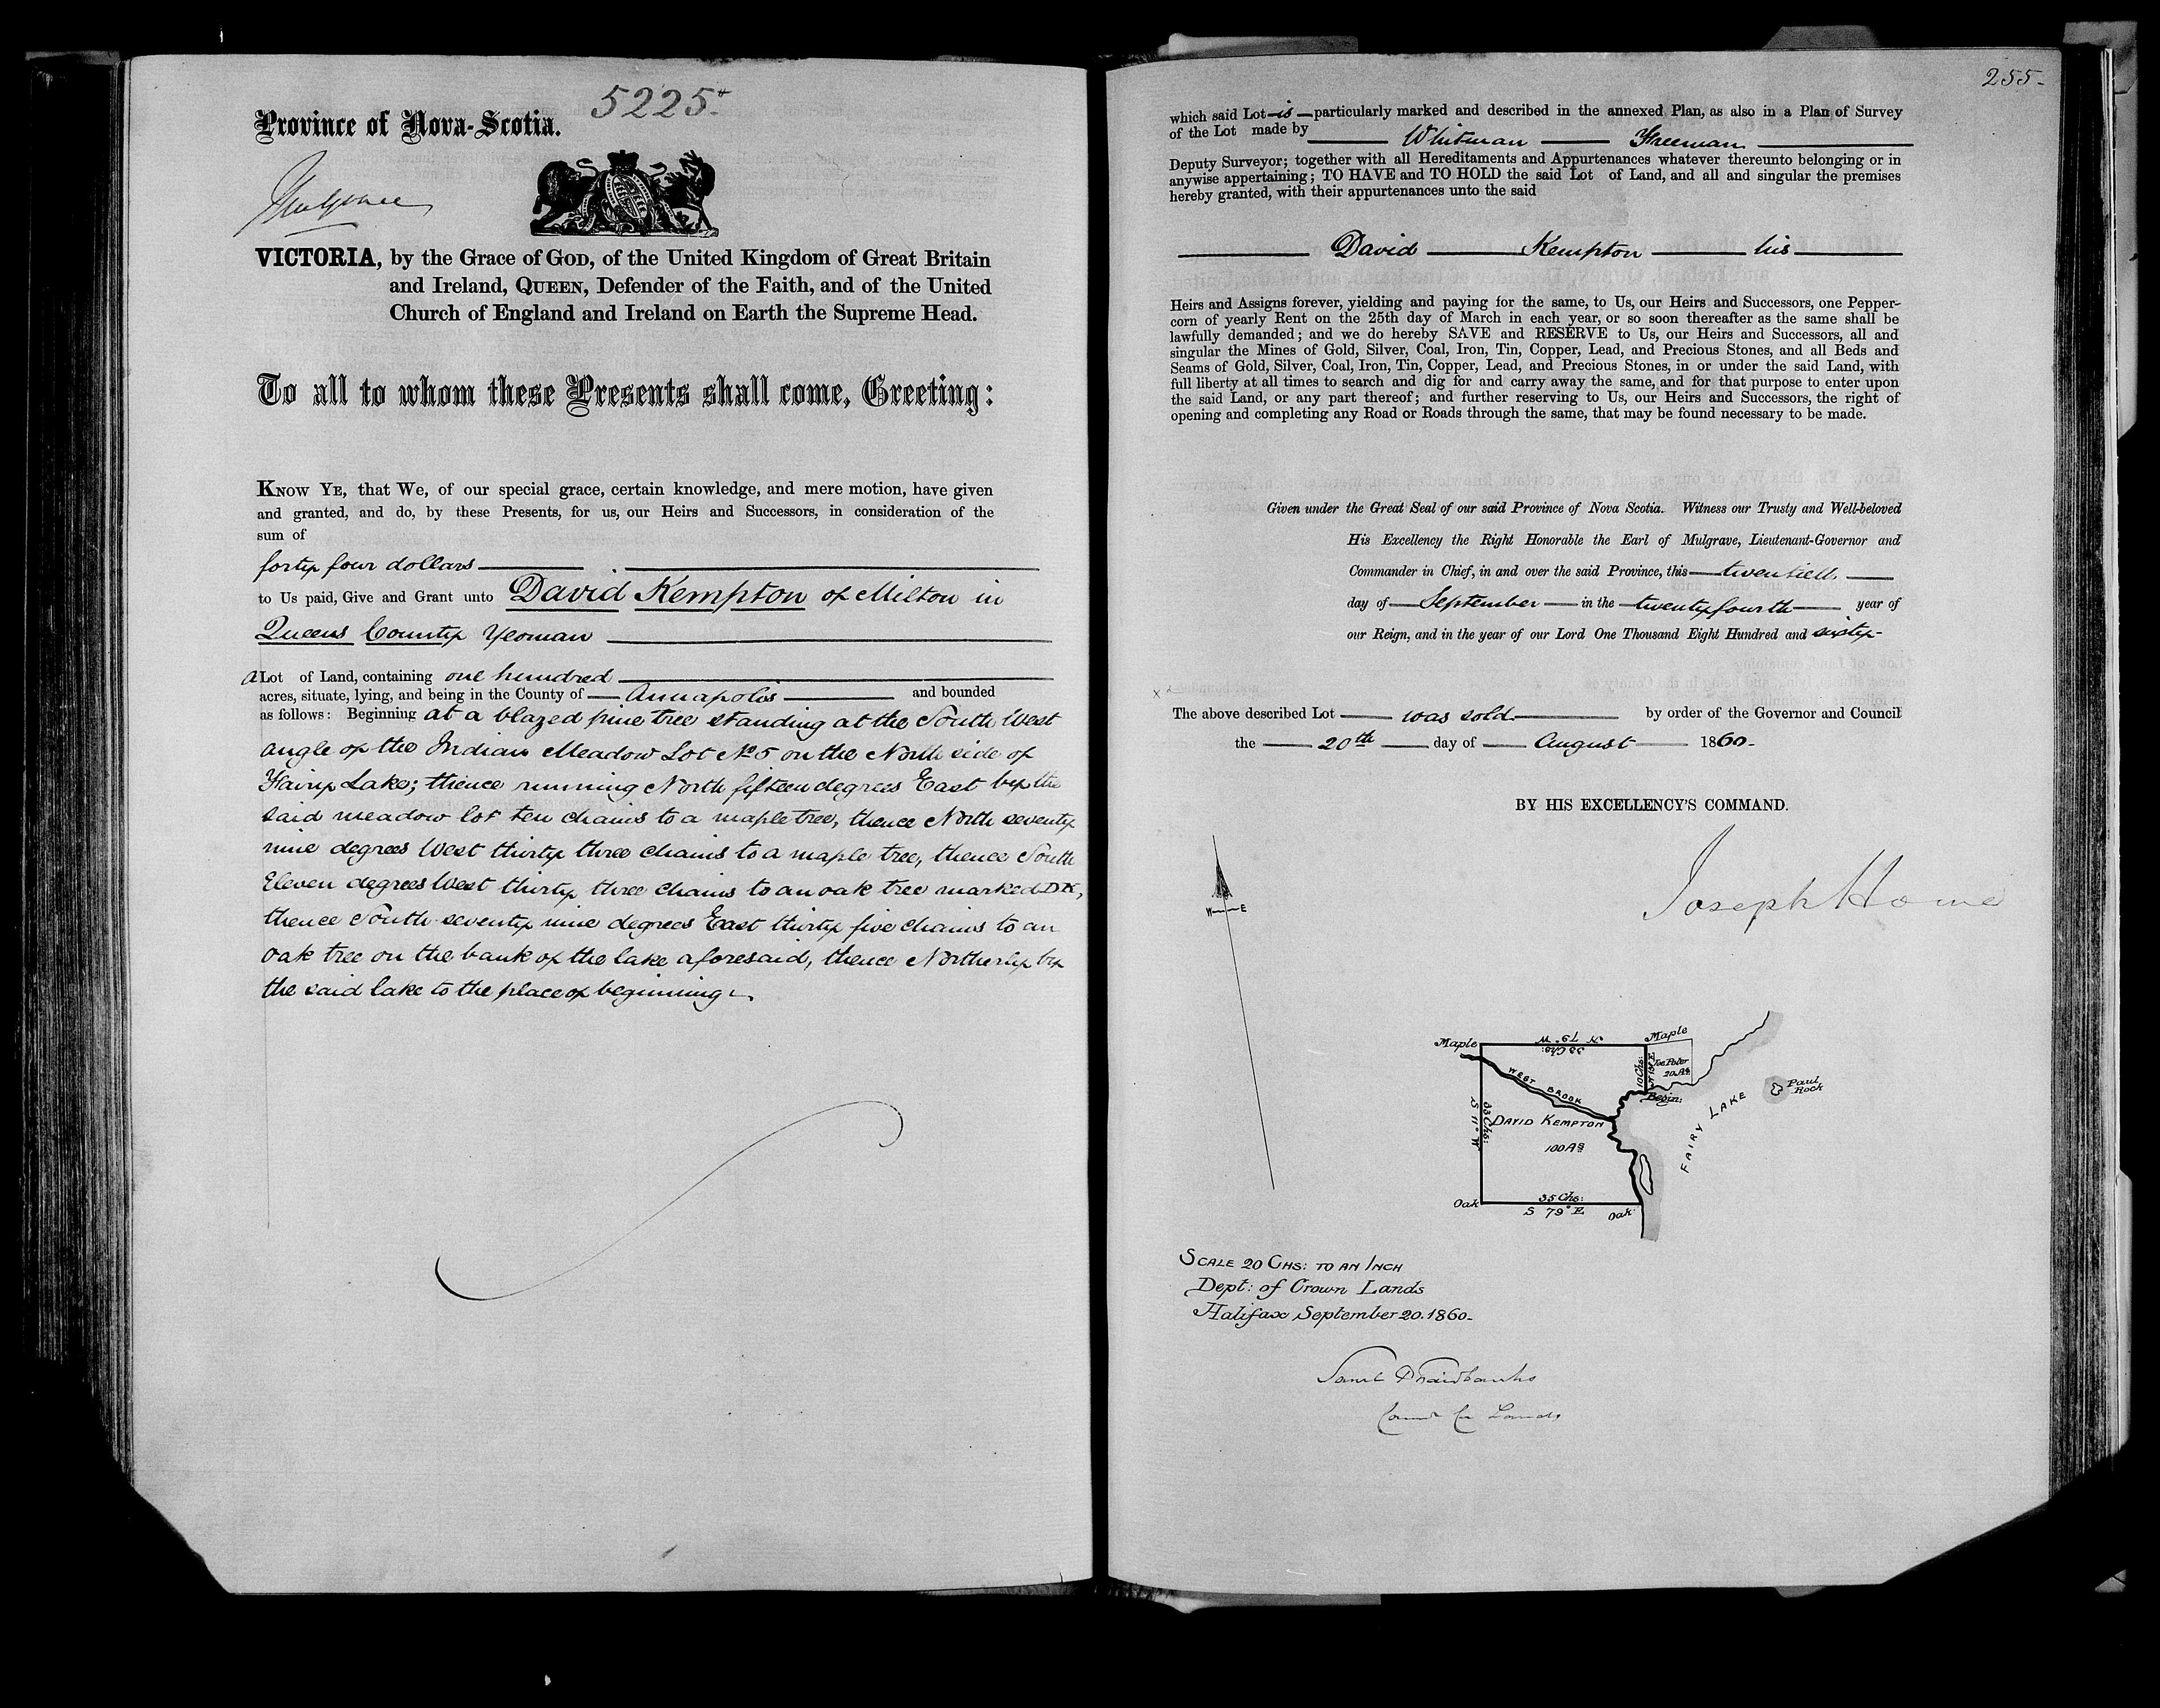 5225.
Province of Nova-Scotia.
Mulgrave
VICTORIA, by the Grace of GOD, of the United Kingdom of Great Britain
and Ireland, QUEEN, Defender of the Faith, and of the United
Church of England and Ireland on Earth the Supreme Head.
To all to whom these Presents shall come, Greeting:
KNOW YE, that We, of our special grace, certain knowledge, and mere motion, have given
and granted, and do, by these Presents, for us, our Heirs and Successors, in consideration of the
sum of
forty four dollars
to Us paid, Give and Grant unto David Kempton of Milton in
Queens County Yeoman
a Lot of Land, containing one hundred
acres, situate, lying, and being in the County of Annapolis and bounded
as follows: Beginning at a blazed pine tree standing at the South West
angle of the Indian Meadow Lot No 5 on the North side of
Fairy Lake; thence running North fifteen degrees East by the
said meadow lot ten chains to a maple tree, thence North seventy
nine degrees West thirty three chains to a maple tree, thence South
Eleven degrees West thirty three chains to an oak tree marked DK,
thence South seventy nine degrees East thirty five chains to an
oak tree on the bank of the lake aforesaid, thence Northerly by
the said lake to the place of beginning.
255-
which said Lot is particularly marked and described in the annexed Plan, as also in a Plan of Survey
of the Lot made by Whitman Freeman
Deputy Surveyor; together with all Hereditaments and Appurtenances whatever thereunto belonging or in
anywise appertaining; TO HAVE and TO HOLD the said Lot of Land, and all and singular the premises
hereby granted, with their appurtenances unto the said
David Kempton his
Heirs and Assigns forever, yielding and paying for the same, to Us, our Heirs and Successors, one Pepper-
corn of yearly Rent on the 25th day of March in each year, or so soon thereafter as the same shall be
lawfully demanded; and we do hereby SAVE and RESERVE to Us, our Heirs and Successors, all and
singular the Mines of Gold, Silver, Coal, Iron, Tin, Copper, Lead, and Precious Stones, and all Beds and
Seams of Gold, Silver, Coal, Iron, Tin, Copper, Lead, and Precious Stones, in or under the said Land, with
full liberty at all times to search and dig for and carry away the same, and for that purpose to enter upon
the said Land, or any part thereof; and further reserving to Us, our Heirs and Successors, the right of
opening and completing any Road or Roads through the same, that may be found necessary to be made.
Given under the Great Seal of our said Province of Nova Scotia. Witness our Trusty and Well-beloved
His Excellency the Right Honorable the Earl of Mulgrave, Lieutenant-Governor and
Commander in Chief, in and over the said Province, this twentieth
day of September in the twenty fourth year of
our Reign, and in the year of our Lord One Thousand Eight Hundred and sixty-
The above described Lot was sold by order of the Governor and Council
the 20th day of August 1860-
BY HIS EXCELLENCY'S COMMAND.
Joseph Howe
W E
Maple
N 79° W
33 Chs:
Maple
10 Chs:
N 15° E
Joe Peter
20 As
Begin:
Paul
Rock
WEST BROOK
FAIRY LAKE
S 11° W
33 Chs:
DAVID KEMPTON
100 As
Oak
35 Chs:
S 79° E
Oak
SCALE 20 CHS: TO AN INCH
Dept: of Crown Lands
Halifax September 20. 1860-
Saml P Fairbanks
Comr Cn Lands